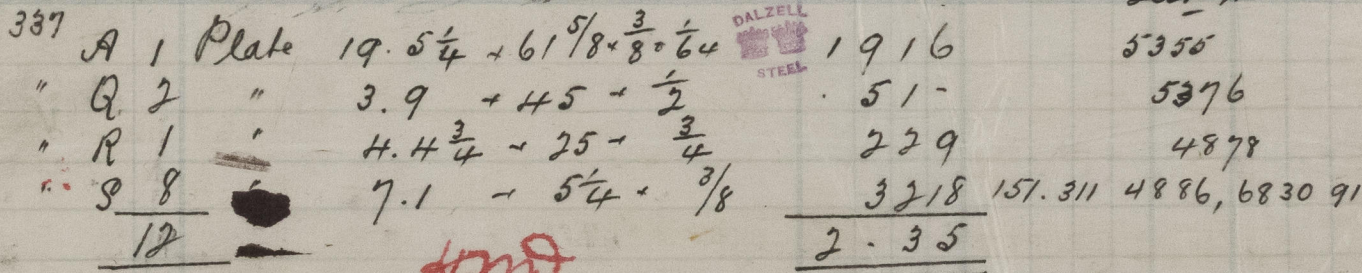 337 A 1 Plate 19. 5 1/4 × 61 5/8 × 3/8 + 1/64 DALZELL STEEL 1 9 1 6 5355
" Q 2 " 3. 9 × 45 × 1/2 . 5 1 - 5376
" R 1 " 4. 4 3/4 × 25 × 3/4 2 2 9 4878
" S 8 " 7. 1 × 5 1/4 × 3/8 3 2 1 8 151. 311 4886, 6830 91
12 2 . 3 5